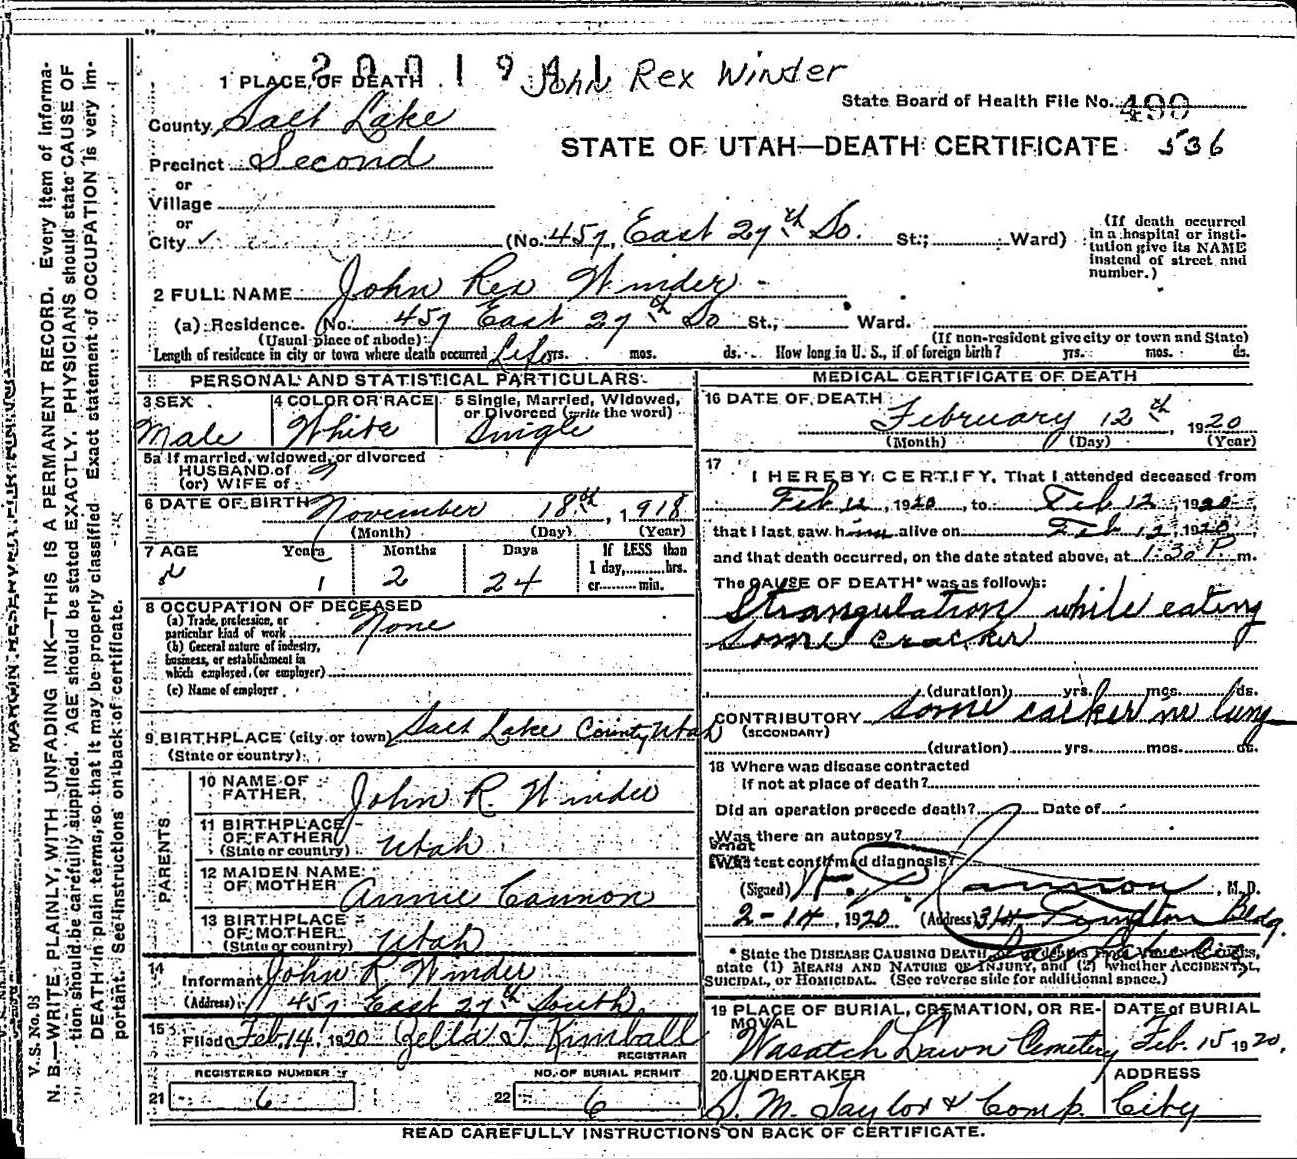 2001941 John Rex Winder
1 PLACE OF DEATH
State Board of Health File No. 490
County Salt Lake
STATE OF UTAH—DEATH CERTIFICATE 536
Precinct Second
or
Village
or
City (No. 457, East 27th So. St.; Ward)
(If death occurred in a hospital or institution give its NAME instead of street and number.)
2 FULL NAME John Rex Winder
(a) Residence. (No. 457 East 27th So St., Ward.
(Usual place of abode) (If non-resident give city or town and State)
Length of residence in city or town where death occurred Life yrs. mos. ds. How long in U. S., if of foreign birth? yrs. mos. ds.
PERSONAL AND STATISTICAL PARTICULARS
3 SEX 4 COLOR OR RACE 5 Single, Married, Widowed, or Divorced (write the word)
Male White Single
5a If married, widowed, or divorced
HUSBAND of
(or) WIFE of
6 DATE OF BIRTH November 18th, 1918
(Month) (Day) (Year)
7 AGE Years Months Days If LESS than
1 day, hrs.
or min.
1 2 24
8 OCCUPATION OF DECEASED
(a) Trade, profession, or
particular kind of work None
(b) General nature of industry,
business, or establishment in
which employed, (or employer)
(c) Name of employer
9 BIRTHPLACE (city or town) Salt Lake County Utah
(State or country)
PARENTS
10 NAME OF FATHER John R. Winder
11 BIRTHPLACE OF FATHER (State or country) Utah
12 MAIDEN NAME OF MOTHER Annie Cannon
13 BIRTHPLACE OF MOTHER (State or country) Utah
14 Informant John R Winder
(Address) 457 East 27th South
15 Filed Feb. 14, 1920 Zella T. Kimball
REGISTRAR
REGISTERED NUMBER NO. OF BURIAL PERMIT
21 6 22 6
MEDICAL CERTIFICATE OF DEATH
16 DATE OF DEATH
February 12th, 1920
(Month) (Day) (Year)
17 I HEREBY CERTIFY, That I attended deceased from
Feb 12, 1920, to Feb 12, 1920,
that I last saw him alive on Feb 12, 1920
and that death occurred, on the date stated above, at 1:30 P m.
The CAUSE OF DEATH* was as follows:
Strangulation while eating
some cracker
(duration) yrs. mos. ds.
CONTRIBUTORY some cacker in lung
(SECONDARY)
(duration) yrs. mos. ds.
18 Where was disease contracted
if not at place of death?
Did an operation precede death? Date of
Was there an autopsy?
What test confirmed diagnosis?
(Signed) , M.D.
2-14, 1920 (Address) 314 Bldg.
Salt Lake City
* State the DISEASE CAUSING DEATH,
state (1) MEANS AND NATURE OF INJURY, and (2) whether ACCIDENTAL,
SUICIDAL, or HOMICIDAL. (See reverse side for additional space.)
19 PLACE OF BURIAL, CREMATION, OR REMOVAL DATE of BURIAL
Wasatch Lawn Cemetery Feb. 15 1920.
20 UNDERTAKER ADDRESS
S. M. Taylor & Comp. City
READ CAREFULLY INSTRUCTIONS ON BACK OF CERTIFICATE.
V. S. No. 98
MARGIN RESERVED FOR BINDING
N. B.—WRITE PLAINLY, WITH UNFADING INK—THIS IS A PERMANENT RECORD. Every item of informa-
tion should be carefully supplied. AGE should be stated EXACTLY. PHYSICIANS should state CAUSE OF
DEATH in plain terms, so that it may be properly classified. Exact statement of OCCUPATION is very im-
portant. See instructions on back of certificate.